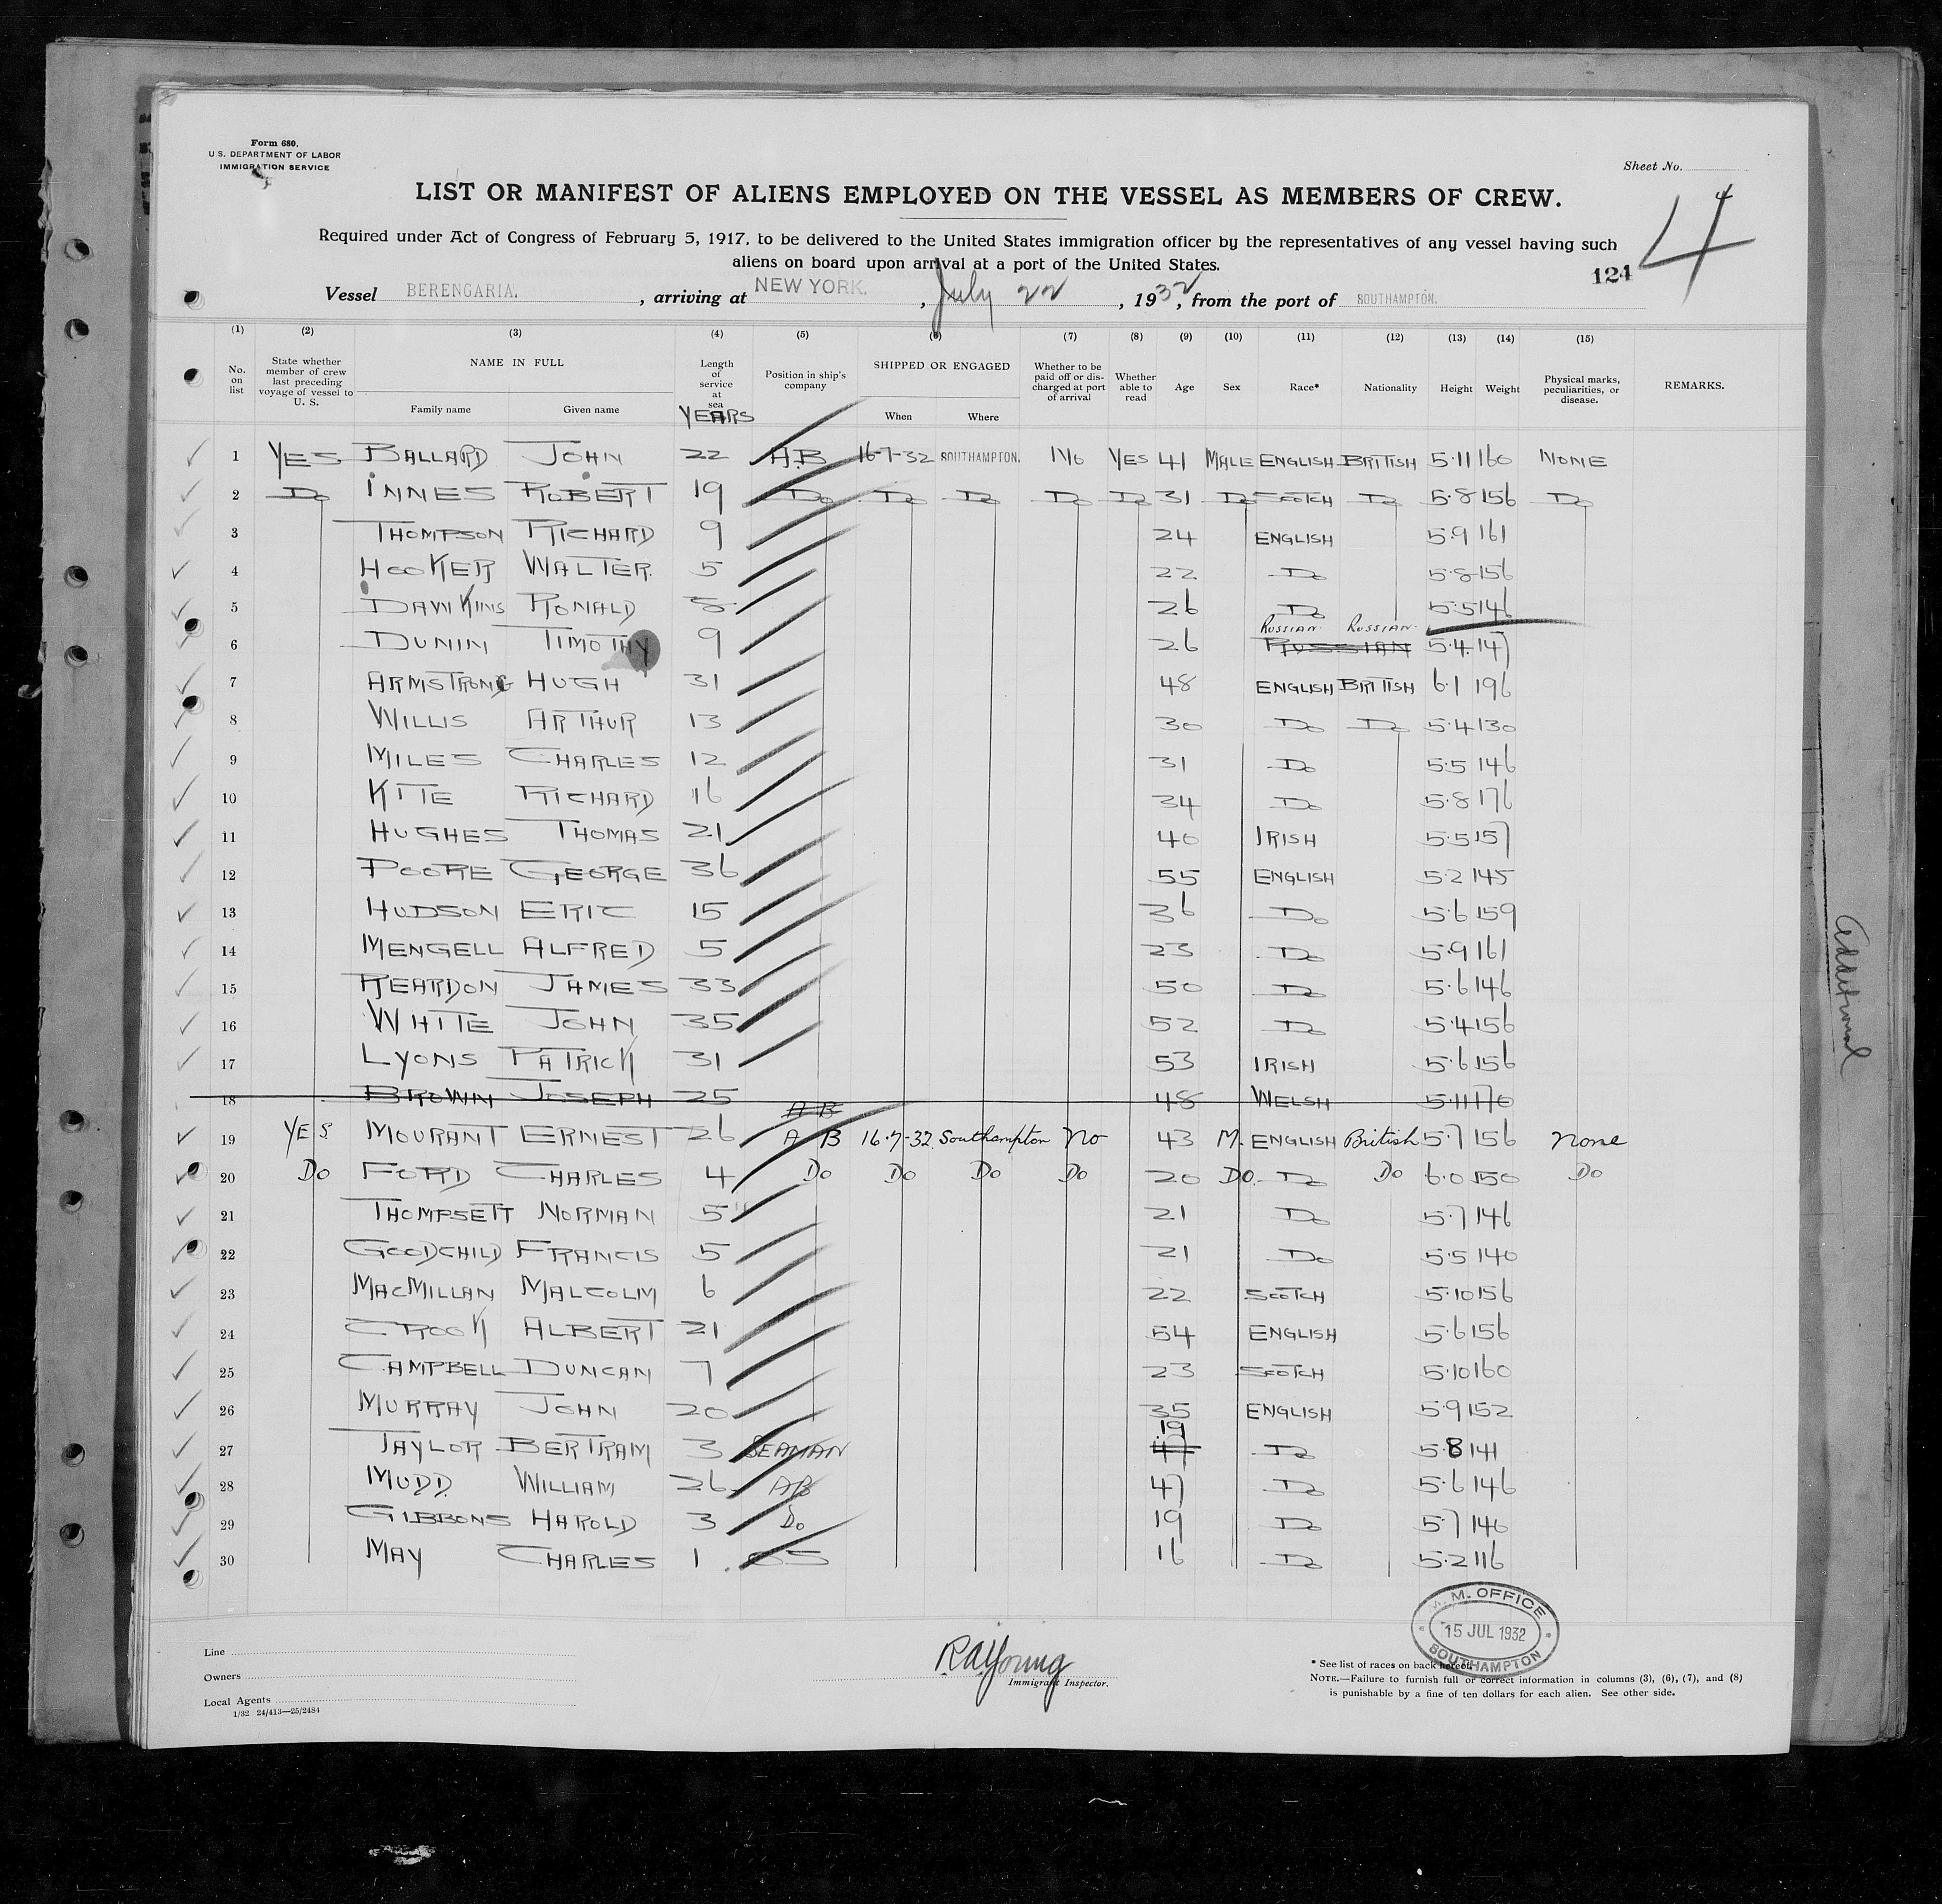 Form 680.
U.S. DEPARTMENT OF LABOR
IMMIGRATION SERVICE
Sheet No.
4
LIST OR MANIFEST OF ALIENS EMPLOYED ON THE VESSEL AS MEMBERS OF CREW.
4
Required under Act of Congress of February 5, 1917, to be delivered to the United States immigration officer by the representatives of any vessel having such
aliens on board upon arrival at a port of the United States.
124
Vessel BERENGARIA. , arriving at NEW YORK. , July 22 , 1932, from the port of SOUTHAMPTON.
(1) (2) (3) (4) (5) (6) (7) (8) (9) (10) (11) (12) (13) (14) (15)
No. on list State whether member of crew last preceding voyage of vessel to U. S. NAME IN FULL Family name Given name Length of service at sea YEARS Position in ship's company SHIPPED OR ENGAGED When Where Whether to be paid off or discharged at port of arrival Whether able to read Age Sex Race* Nationality Height Weight Physical marks, peculiarities, or disease. REMARKS.
1 YES BALLARD JOHN 22 A.B 16-7-32 SOUTHAMPTON. NO YES 41 MALE ENGLISH BRITISH 5.11 160 NONE
2 Do INNES ROBERT 19 Do Do Do Do Do 31 Do SCOTCH Do 5.8 156 Do
3 THOMPSON RICHARD 9 24 ENGLISH 5.9 161
4 HOOKER WALTER 5 22 Do 5.8 156
5 DAWKINS RONALD 8 26 Do 5.5 146
RUSSIAN RUSSIAN
6 DUNIN TIMOTHY 9 26 RUSSIAN 5.4 147
7 ARMSTRONG HUGH 31 48 ENGLISH BRITISH 6.1 196
8 WILLIS ARTHUR 13 30 Do Do 5.4 130
9 MILES CHARLES 12 31 Do 5.5 146
10 KITE RICHARD 16 34 Do 5.8 176
11 HUGHES THOMAS 21 40 IRISH 5.5 157
12 POORE GEORGE 36 55 ENGLISH 5.2 145
13 HUDSON ERIC 15 36 Do 5.6 159
14 MENGELL ALFRED 5 23 Do 5.9 161
15 REARDON JAMES 33 50 Do 5.6 146
16 WHITE JOHN 35 52 Do 5.4 156
17 LYONS PATRICK 31 53 IRISH 5.6 156
18 BROWN JOSEPH 25 A B 48 WELSH 5.11 170
19 YES MOURANT ERNEST 26 A B 16.7-32 Southampton No 43 M. ENGLISH British 5.7 156 None
20 Do FORD CHARLES 4 Do Do Do Do 20 DO. Do Do 6.0 150 Do
21 THOMPSETT NORMAN 5 21 Do 5.7 146
22 GOODCHILD FRANCIS 5 21 Do 5.5 140
23 MACMILLAN MALCOLM 6 22 SCOTCH 5.10 156
24 CROOK ALBERT 21 54 ENGLISH 5.6 156
25 CAMPBELL DUNCAN 7 23 SCOTCH 5.10 160
26 MURRAY JOHN 20 35 ENGLISH 5.9 152
27 TAYLOR BERTRAM 3 SEAMAN 19 Do 5.8 141
28 MUDD. WILLIAM 26 AB 47 Do 5.6 146
29 GIBBONS HAROLD 3 Do 19 Do 5.7 146
30 MAY CHARLES 1 OS 16 Do 5.2 116
Additional
M. M. OFFICE
15 JUL 1932
SOUTHAMPTON
Line
Owners
Local Agents
1/32 24/413—25/2484
RA Young
Immigrant Inspector.
* See list of races on back hereof.
NOTE.—Failure to furnish full or correct information in columns (3), (6), (7), and (8)
is punishable by a fine of ten dollars for each alien. See other side.